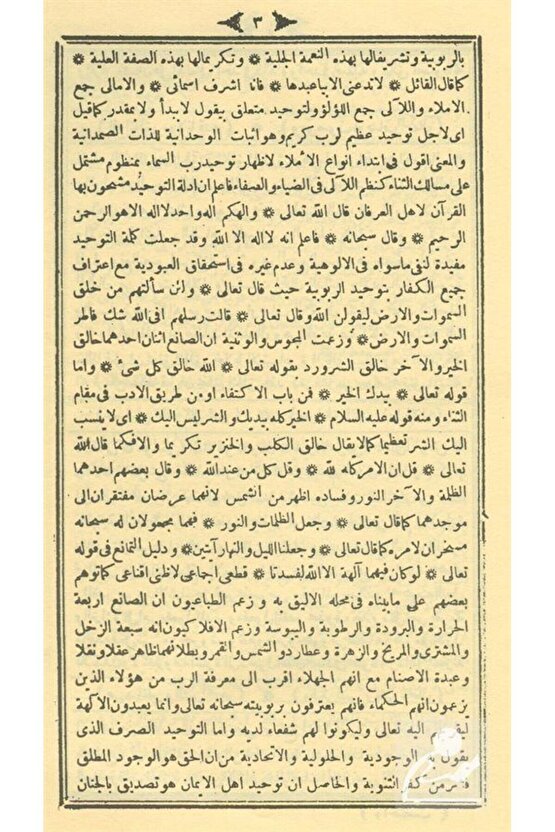 ٣
بالربوبية وتشريفا لها بهذه النعمة الجلية ❊ وتكريما لها بهذه الصفة العلية ❊
كما قال القائل ❊ لا تدعنى الا بيا عبدها ❊ فانه اشرف اسمائى ❊ والامالى جمع
الاملاء واللآلى جمع اللؤلؤ ولتوحيد متعلق بيقول لا ببدأ ولا بمقدر كما قيل
اى لاجل توحيد عظيم لرب كريم وهو اثبات الوحدانية للذات الصمدانية
والمعنى اقول فى ابتداء انواع الأملاء لاظهار توحيد رب السماء بمنظوم مشتمل
على مسالك الثناء كنظم اللآلى فى الضياء والصفاء فاعلم ان ادلة التوحيد مشحون بها
القرآن لاهل العرفان قال الله تعالى ❊ والهكم اله واحد لا اله الا هو الرحمن
الرحيم ❊ وقال سبحانه ❊ فاعلم انه لا اله الا الله وقد جعلت كلمة التوحيد
مفيدة لنفى ماسواه فى الالوهية وعدم غيره فى استحقاق العبودية مع اعتراف
جميع الكفار بتوحيد الربوبية حيث قال تعالى ❊ ولئن سألتهم من خلق
السموات والارض ليقولن الله وقال تعالى ❊ قالت رسلهم افى الله شك فاطر
السموات والارض ❊ وزعمت المجوس والوثنية ان الصانع اثنان احدهما خالق
الخير والآخر خالق الشر ورد بقوله تعالى ❊ الله خالق كل شئ ❊ واما
قوله تعالى ❊ بيدك الخير ❊ فمن باب الاكتفاء او من طريق الادب فى مقام
الثناء ومنه قوله عليه السلام ❊ الخير كله بيديك والشر ليس اليك ❊ اى لا ينسب
اليك الشر تعظيما كما لا يقال خالق الكلب والخنزير تكريما والا فكما قال الله
تعالى ❊ قل ان الامر كله لله ❊ وقل كل من عند الله ❊ وقال بعضهم احدهما
الظلمة والآخر النور وفساده اظهر من الشمس لانهما عرضان مفتقران الى
موجدهما كما قال تعالى ❊ وجعل الظلمات والنور ❊ فهما مجعولان له سبحانه
مسخران لامره كما قال تعالى ❊ وجعلنا الليل والنهار آيتين ❊ ودليل التمانع فى قوله
تعالى ❊ لو كان فيهما آلهة الا الله لفسدتا ❊ قطعى اجماعى لا ظنى اقناعى كما توهم
بعضهم على ما بيناه فى محله الاليق به وزعم الطباعيون ان الصانع اربعة
الحرارة والبرودة والرطوبة واليبوسة وزعم الافلاكيون انه سبعة الزحل
والمشترى والمريخ والزهرة وعطارد والشمس والقمر وبطلانهما ظاهر عقلا ونقلا
وعبدة الاصنام مع انهم الجهلاء اقرب الى معرفة الرب من هؤلاء الذين
يزعمون انهم الحكماء فانهم يعترفون بربوبيته سبحانه تعالى وانما يعبدون الآلهة
ليقربهم اليه تعالى وليكونوا لهم شفعاء لديه واما التوحيد الصرف الذى
يقول به الوجودية والحلولية والاتحادية من ان الحق هو الوجود المطلق
من كفر الثنوية والحاصل ان توحيد اهل الايمان هو تصديق بالجنان